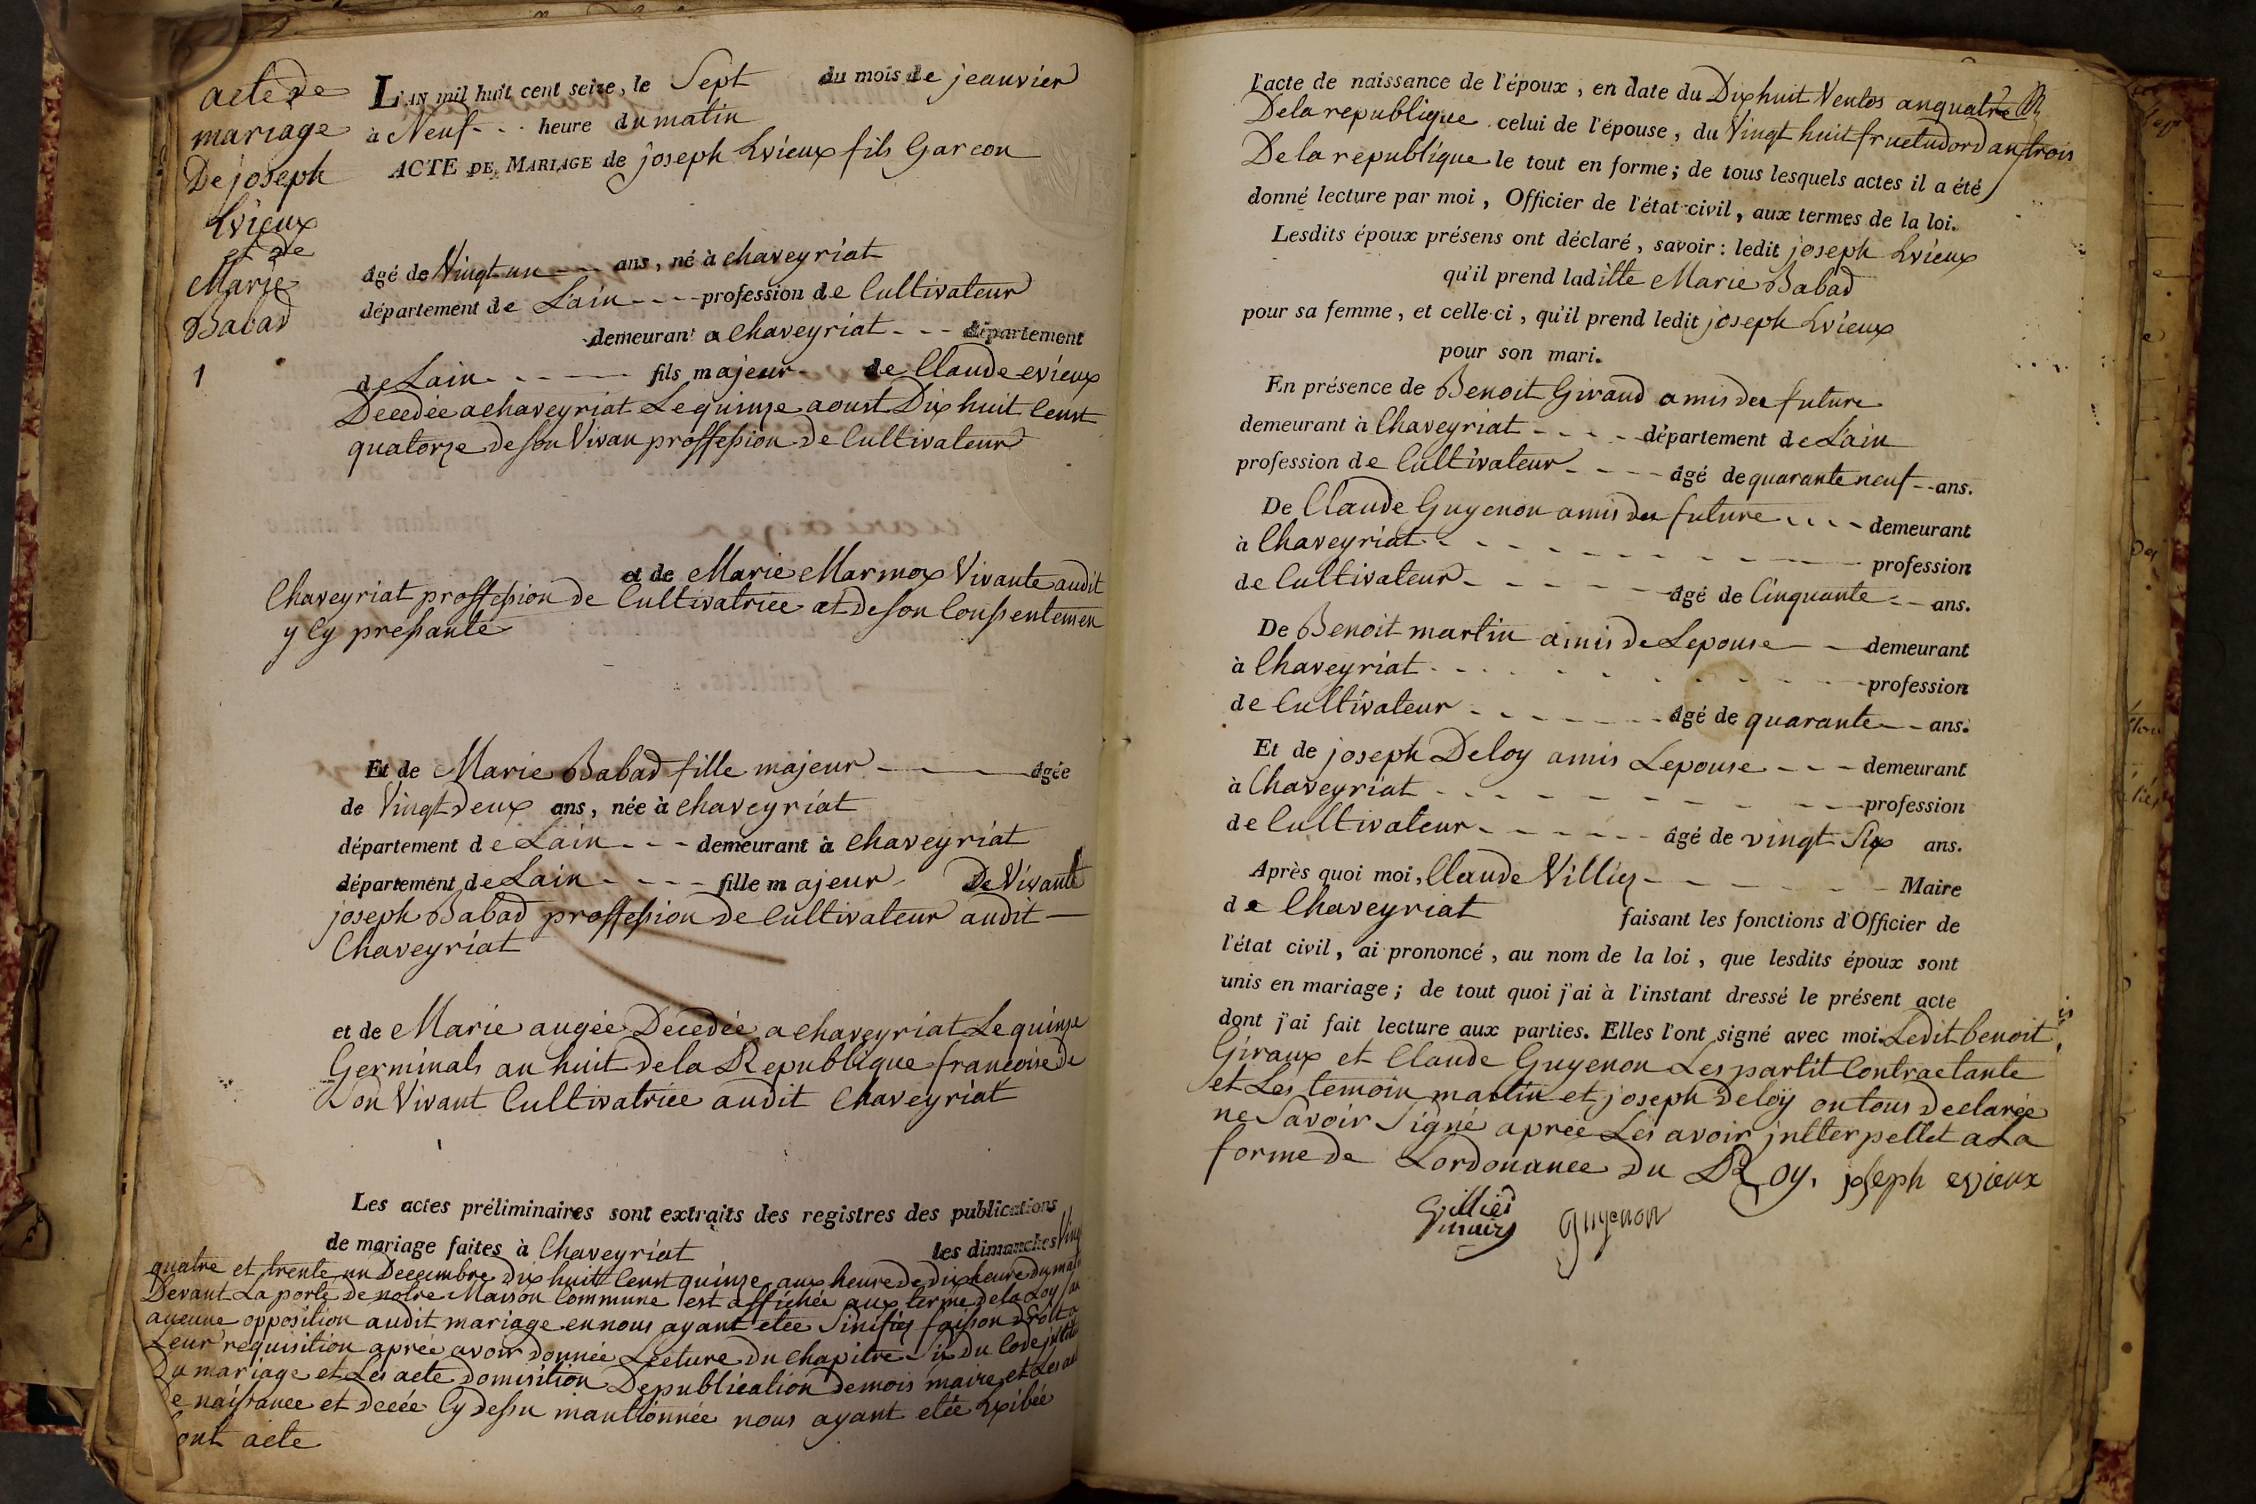 acte de
mariage
De joseph
Evieux
et de
Marie
Babad
1
L'AN mil huit cent seize, le Sept du mois de jeanvier
à Neuf - - - heure du matin
ACTE DE MARIAGE de joseph Evieux fils Garcon
âgé de Vingt un - - - ans, né à chaveyriat
département de Lain - - - - profession de Cultivateur
demeurant a chaveyriat - - - département
de Lain - - - - fils majeur de Claude evieux
Decedée a chaveyriat Le quinze aoust Dix huit Cent
quatorze de son Vivan proffession de Cultivateur
et de Marie Marmox Vivante audit
Chaveyriat proffession de Cultivatriee et de son Conssentemen
y Cy pressante
Et de Marie Babad fille majeur - - - âgée
de Vingt deux ans, née à chaveyriat
département de Lain - - - demeurant à chaveyriat
département de Lain - - - - fille majeur - De Vivante
joseph Babad proffession de Cultivateur audit -
Chaveyriat
et de Marie augée Décedée a chaveyriat Le quinze
Germinals an huit de la Republique francoise de
Son Vivant Cultivatriee audit Chaveyriat
Les actes préliminaires sont extraits des registres des publications
de mariage faites à Chaveyriat les dimanches Ving
quatre et trente un Decembre Dix huit Cent quinze aux heure de Dix heure du mat
Devant La porte de notre Maison Commune est affichée aux terme de la Loy
aucune opposition audit mariage en nous ayant etée Sinifiez faison droit a
Leur requisition aprée avoir donnée Leeture du chapitre Six du Code
Du mariage et Les acte Domisition De publication de mois maire et Les
De naissance et decée Cy dessu mantionnée nous ayant etée Exibée
Dont acte
l'acte de naissance de l'époux, en date du Dix huit Ventos an quatre
De la republique celui de l'épouse, du Vingt huit fructudord an trois
De la republique le tout en forme; de tous lesquels actes il a été
donné lecture par moi, Officier de l'état civil, aux termes de la loi.
Lesdits époux présens ont déclaré, savoir: ledit joseph Evieux
qu'il prend laditte Marie Babad
pour sa femme, et celle-ci, qu'il prend ledit joseph Evieux
pour son mari.
En présence de Benoit Giraud amis du future
demeurant à Chaveyriat - - - - département de Lain
profession de Cultivateur - - - - âgé de quarante neuf - - ans.
De Claude Guyenon amis du future - - - - demeurant
à Chaveyriat - - - - profession
de Cultivateur - - - - âgé de Cinquante - - ans.
De Benoit martin amis de Lepouse - - demeurant
à Chaveyriat - - - - profession
de Cultivateur - - - - âgé de quarante - - ans.
Et de joseph Deloy amis Lepouse - - - demeurant
à Chaveyriat - - - - profession
de Cultivateur - - - - âgé de vingt Six ans.
Après quoi moi, Claude Villiez - - - - Maire
de Chaveyriat faisant les fonctions d'Officier de
l'état civil, ai prononcé, au nom de la loi, que lesdits époux sont
unis en mariage; de tout quoi j'ai à l'instant dressé le présent acte
dont j'ai fait lecture aux parties. Elles l'ont signé avec moi. Ledit benoit
Giraux et Claude Guyenon Les partit Contractante
et Les temoin martin et joseph deloÿ on tous declarée
ne Savoir Signé aprée Les avoir jntterpellet a La
forme de Lordonance du Roy. joseph evieux
guyenon